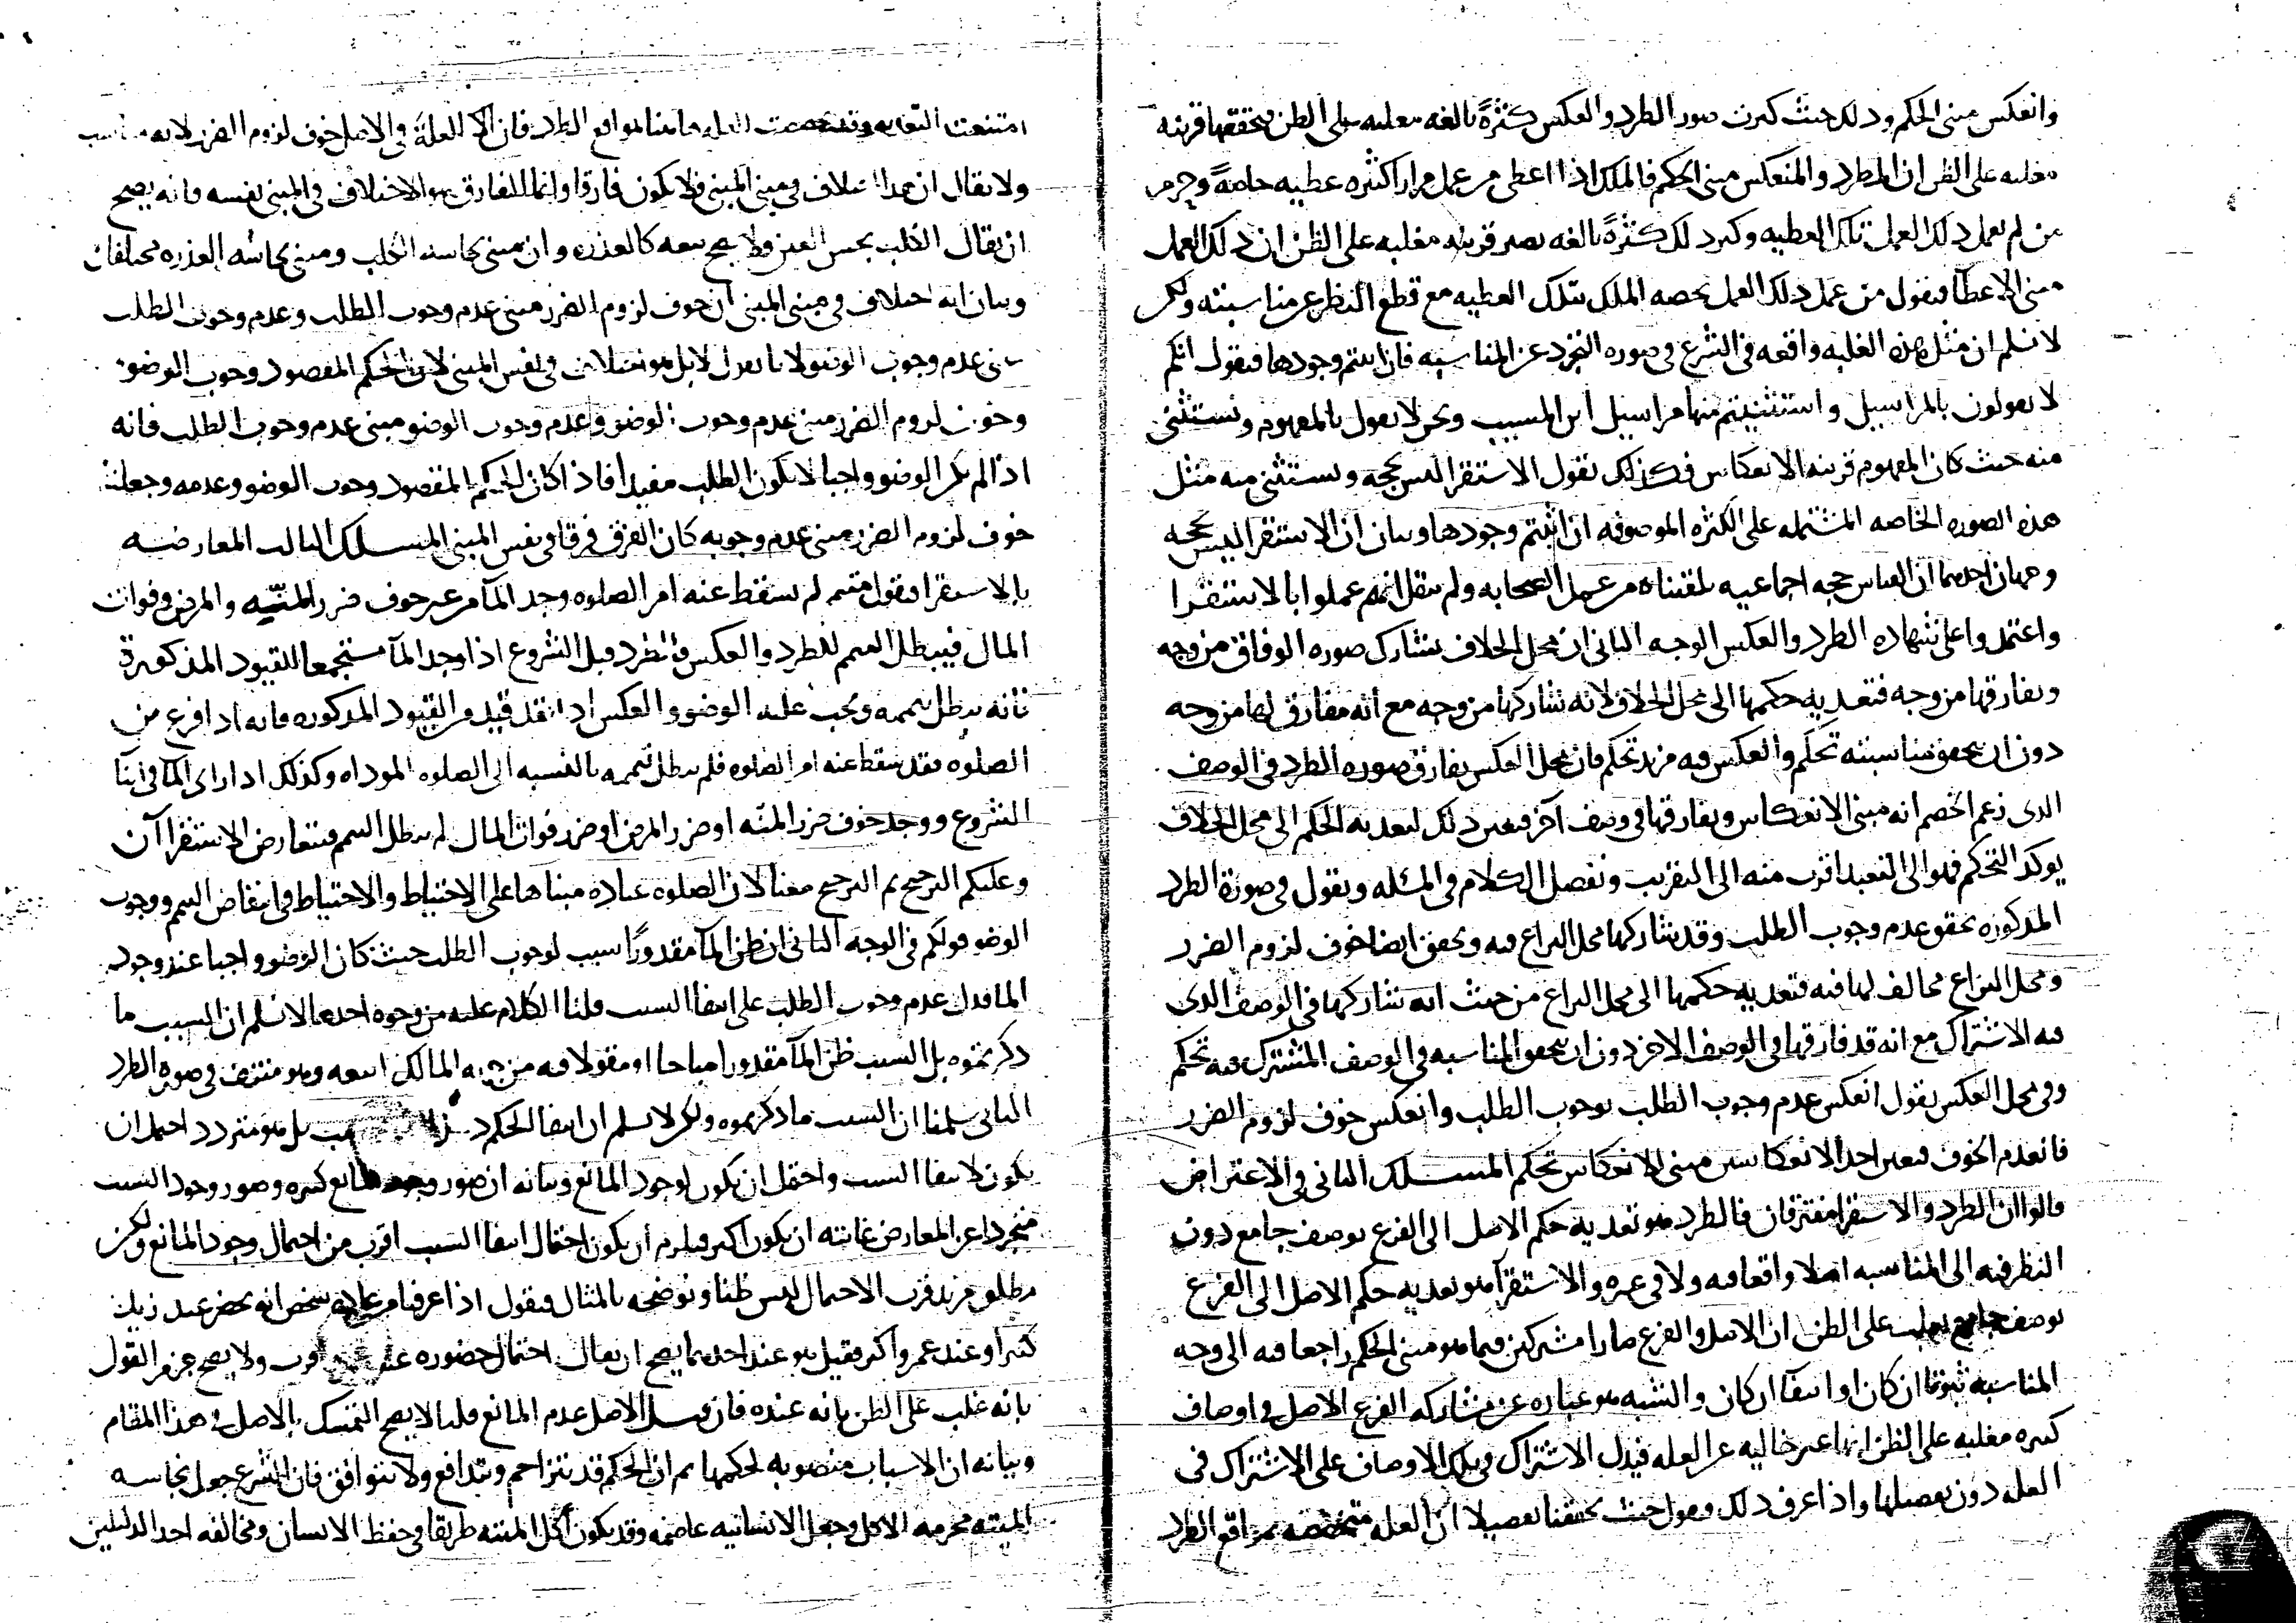 وانعكس مبنى الحكم وذلك حيث كبرت صور الطرد والعكس كثرةً بالغه مغلبه على الظن فتحققها قرينه
مغلبه على الظن ان المطرد والمنعكس مبنى الحكم فالملك اذا اعطى من عمل مرارا كثيره عطيه خاصةً وحرم
من لم يعمل ذلك العمل تلك العطيه وكبر ذلك كثرةً بالغه يصير قرينه مغلبه على الظن ان ذلك العمل
مبنى الاعطآ فيقول من عمل ذلك العمل يخصه الملك بتلك العطيه مع قطع النظر عن مناسبته ولكن
لا نسلم ان مثل هذه الغلبه واقعه في الشرع في صوره التجرد عن المناسبه فان ابنتم وجودها فيقول انكم
لا تعولون بالمراسيل واستثنيتم منها مراسيل ابن المسيب ونحن لا نقول بالمفهوم ونستثنى
منه حيث كان المفهوم قرينه الانعكاس فكذلك نقول الاستقرا ليس بحجه ونستثنى منه مثل
هذه الصوره الخاصه المشتمله على الكثره الموصوفه ان اثبتم وجودها وبيان ان الاستقرا ليس بحجه
وجهان احدهما ان القياس حجه اجماعيه تلقيناه من عمل الصحابه ولم ينقل انهم عملوا بالاستقرا
واعتمدوا على شهاده الطرد والعكس الوجه الثانى ان محل الخلاف يشارك صوره الوفاق من وجه
ويفارقها من وجه فتعديه حكمها الى محل الخلاف لانه شاركها من وجه مع انه مفارق لها من وجه
دون ان يتحقق مناسبته تحكم والعكس فيه مزيد تحكم فان محل العكس يفارق صوره الطرد في الوصف
الذى زعم الخصم انه مبنى الانعكاس ويفارقها في وصف آخر فتعين ذلك لتعديه الحكم الى محل الخلاف
يوكد التحكم فهو الى التعبد اقرب منه الى التقريب ونفصل الكلام في المسئله ونقول في صورة الطرد
المذكوره تحقق عدم وجوب الطلب وقد شاركها محل النزاع فيه وتحقق ايضا خوف لزوم الضرر
ومحل النزاع مخالف لها فيه فتعديه حكمها الى محل النزاع من حيث انه شاركها في الوصف الذى
فيه الاشتراك مع انه قد فارقها في الوصف الاخر دون ان يتحقق المناسبه في الوصف المشترك فيه تحكم
وفي محل العكس نقول انعكس عدم وجوب الطلب بوجوب الطلب وانعكس خوف لزوم الضرر
فانعدم الخوف فتعين احد الانعكاسين مبنى الانعكاس تحكم المسلك الثانى في الاعتراض
قالوا ان الطرد والاستقرا مفترقان فالطرد هو تعديه حكم الاصل الى الفرع بوصف جامع دون
النظر فيه الى المناسبه اصلا واقعا فيه ولا في غيره والاستقرآ هو تعديه حكم الاصل الى الفرع
بوصف جامع يغلب على الظن ان الاصل والفرع صارا مشتركين فيما هو مبنى الحكم راجعا فيه الى وجه
المناسبه ثبوتا ان كان او انتفا ان كان والشبه هو عباره عن مشاركه الفرع الاصل في اوصاف
كثيره مغلبه على الظن انها غير خاليه عن العله فيدل الاشتراك في تلك الاوصاف على الاشتراك في
العله دون تفصيلها واذا عرف ذلك فنقول حيث تحققنا تفصيلا ان العله متخصصه بمواقع الطرد
امتنعت التعديه وقد تخصصت العله هاهنا بمواقع الطرد فان العلة في الاصل خوف لزوم الضرر لانه مناسب
ولا يقال ان هذا اختلاف في مبنى المبنى فلا يكون فارقا وانما الفارق هو الاختلاف في المبنى نفسه فانه يصح
ان يقال الكلب نجس العين فلا يصح بيعه كالعذره وان مبنى نجاسه الكلب ومبنى نجاسه العذره مختلفان
وبيان انه اختلاف في مبنى المبنى ان خوف لزوم الضرر مبنى عدم وجوب الطلب وعدم وجوب الطلب
مبنى عدم وجوب الوضو لانا نقول لا بل هو اختلاف في نفس المبنى لان الحكم المقصود وجوب الوضو
وخوف لزوم الضرر مبنى عدم وجوب الوضو وعدم وجوب الوضو مبنى عدم وجوب الطلب فانه
اذا لم يكن الوضو واجبا لا يكون الطلب مفيدا فاذا كان الحكم المقصود وجوب الوضو وعدمه وجعلنا
خوف لزوم الضرر مبنى عدم وجوبه كان الفرق فرقا في نفس المبنى المسلك الثالث المعارضه
بالاستقرا فنقول متيمم لم يسقط عنه امر الصلوه وجد المآ من غير خوف ضرر المنّيه والمرض وفوات
المال فيبطل التيمم للطرد والعكس فالطرد قبل الشروع اذا وجد المآ مستجمعا للقيود المذكورة
فانه يبطل تيممه ويجب عليه الوضو والعكس اذا فقد قيد من القيود المذكوره فانه اذا فرغ من
الصلوه فقد سقط عنه امر الصلوه فلم يبطل تيممه بالنسبه الى الصلوه الموداه وكذلك اذا راى المآ في اثنآ
الشروع ووجد خوف ضرر المنّه او ضرر المرض او ضرر فوات المال لم يبطل التيمم فتعارض الاستقرا آن
وعليكم الترجيح ثم الترجيح معنا لان الصلوه عباده مبناها على الاحتياط والاحتياط في انتقاض التيمم ووجوب
الوضو قولكم في الوجه الثانى ان ظن المآ مقدورًا سبب لوجوب الطلب حيث كان الوضو واجبا عند وجود
المآ فدل عدم وجوب الطلب على انتفآ السبب قلنا الكلام عليه من وجوه احدها لا نسلم ان السبب ما
ذكرتموه بل السبب ظن المآ مقدورا مباحا او مقولا فيه من جهه المالك وهو منتف في صوره الطرد
الثانى سلمنا ان السبب ما ذكرتموه ولكن لا نسلم ان انتفا الحكم بل هو متردد احتمل ان
يكون لانتفا السبب واحتمل ان يكون لوجود المانع وبيانه ان صور وجود المانع كثيره وصور وجود السبب
متجردا عن المعارض غايته ان يكون اكثر فيلزم ان يكون احتمال انتفا السبب اقرب من احتمال وجود المانع ولكن
مطلق مزيد قرب الاحتمال ليس ظنا ونوضحه بالمثال فنقول اذا عرفنا من عاده شخص انه يحضر عند زيد
كثيرا وعند عمرو اكثر فقيل هو عند احدهما يصح ان يقال احتمال حضوره عند اقرب ولا يصح جزم القول
بانه غلب على الظن بانه عنده فان قيل الاصل عدم المانع قلنا لا يصح التمسك بالاصل في هذا المقام
وبيانه ان الاسباب منصوبه لحكمها ثم ان الحكم قد تتزاحم وتتدافع ولا تتوافق فان الشرع جعل نجاسه
الميته محرمه الاكل وجعل الانسانيه عاصمه وقد يكون اكل الميته طريقا في حفظ الانسان ومخالفه احد الدليلين